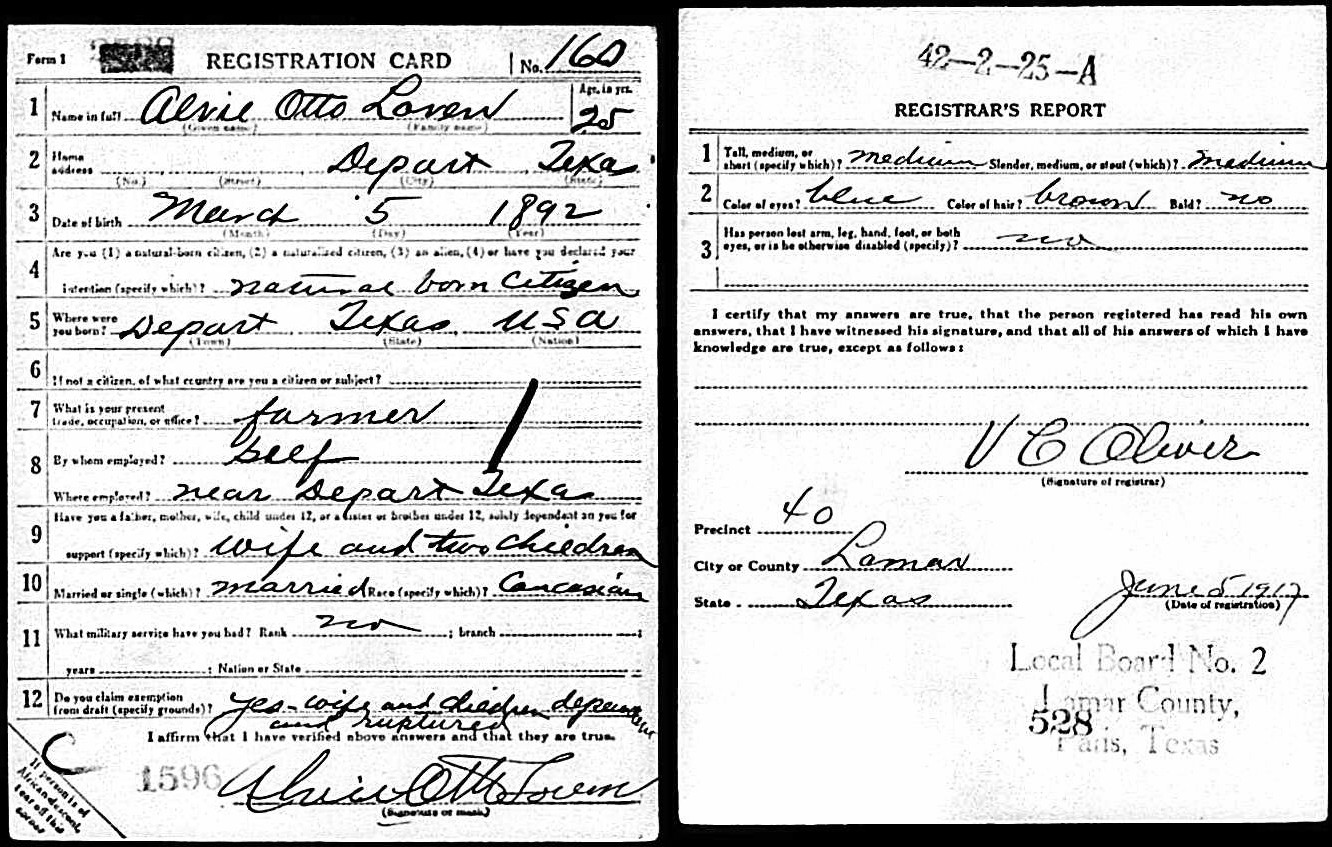 Form 1 REGISTRATION CARD No. 160
1 Name in full Alvie Otto Loven Age, in yrs. 25
(Given name) (Family name)
2 Home address Depart Texas
(No.) (Street) (City) (State)
3 Date of birth March 5 1892
(Month) (Day) (Year)
4 Are you (1) a natural-born citizen, (2) a naturalized citizen, (3) an alien, (4) or have you declared your
intention (specify which)? natural born citizen
5 Where were you born? Depart Texas USA
(Town) (State) (Nation)
6 If not a citizen, of what country are you a citizen or subject?
7 What is your present trade, occupation, or office? farmer
8 By whom employed? self
Where employed? near Depart Texas
9 Have you a father, mother, wife, child under 12, or a sister or brother under 12, solely dependent on you for
support (specify which)? wife and two children
10 Married or single (which)? married Race (specify which)? Caucasian
11 What military service have you had? Rank no ; branch ;
years ; Nation or State
12 Do you claim exemption from draft (specify grounds)? yes - wife and children dependent
and ruptured
I affirm that I have verified above answers and that they are true.
1596 Alvie Otto Loven
(Signature or mark)
C
If person is of
African descent,
tear off this
corner
42-2-25-A
REGISTRAR'S REPORT
1 Tall, medium, or short (specify which)? medium Slender, medium, or stout (which)? medium
2 Color of eyes? blue Color of hair? brown Bald? no
3 Has person lost arm, leg, hand, foot, or both
eyes, or is he otherwise disabled (specify)? no
I certify that my answers are true, that the person registered has read his own
answers, that I have witnessed his signature, and that all of his answers of which I have
knowledge are true, except as follows:
V C Oliver
(Signature of registrar)
Precinct 40
City or County Lamar
State Texas June 5 1917
(Date of registration)
Local Board No. 2
Lamar County,
528
Paris, Texas